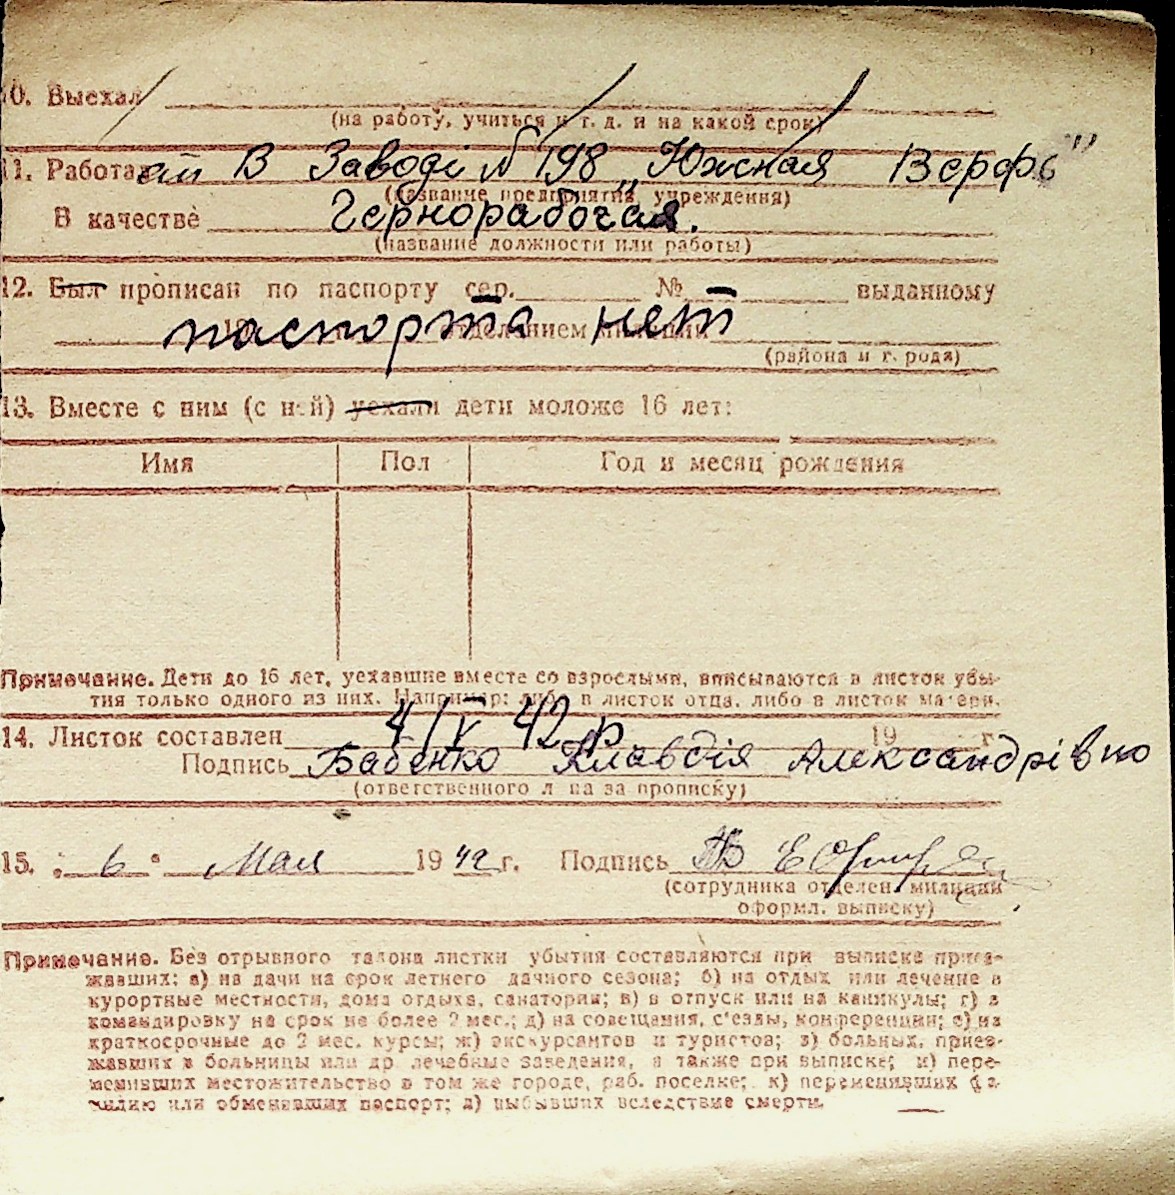 0. Выехал
(на работу, учиться и т. д. и на какой срок)
11. Работает в Заводі № 198 „Южная Верфь"
(название предприятия, учреждения)
В качестве Чернорабочая.
(название должности или работы)
12. Был прописан по паспорту сер. — № — выданному
паспорта нет
отделением милиции
(района и города)
13. Вместе с ним (с ней) уехали дети моложе 16 лет:
Имя Пол Год и месяц рождения
Примечание. Дети до 16 лет, уехавшие вместе со взрослыми, вписываются в листок убы-
тия только одного из них. Например: либо в листок отца, либо в листок матери.
14. Листок составлен 4/V 42 р. 19 г.
Подпись Бабенко Клавдія Александрівно
(ответственного лица за прописку)
15. „6" Мая 1942 г. Подпись
(сотрудника отделен. милиции
оформл. выписку)
Примечание. Без отрывного талона листки убытия составляются при выписке приез-
жавших: а) на дачи на срок летнего дачного сезона; б) на отдых или лечение в
курортные местности, дома отдыха, санатории; в) в отпуск или на каникулы; г) в
командировку на срок не более 2 мес.; д) на совещания, с'езды, конференции; е) на
краткосрочные до 2 мес. курсы; ж) экскурсантов и туристов; з) больных, приез-
жавших в больницы или др лечебные заведения, а также при выписке; и) пере-
менивших местожительство в том же городе, раб. поселке; к) переменивших фа-
милию или обменявших паспорт; л) выбывших вследствие смерти.